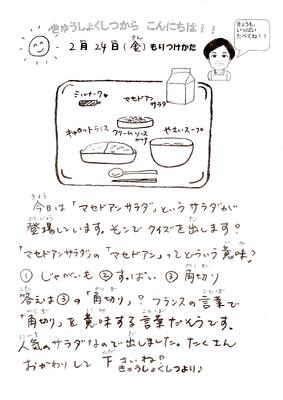 きゅうしょくしつから こんにちは！！
きょうも、
いっぱい
たべてね！！
2月24日(金) もりつけかた
ミルメーク
マセドアン
サラダ
キャロットライス
クリームソース
かつ
やさいスープ
今日は「マセドアンサラダ」というサラダが
登場しています。そこでクイズを出します？
「マセドアンサラダ」の「マセドアン」ってどういう意味？
① じゃがいも ② すっぱい ③ 角切り
答えは③の「角切り」？ フランスの言葉で
「角切り」を意味する言葉だそうです。
人気のサラダなので出しました。たくさん
おかわりして下さいね？
きゅうしょくしつより♪